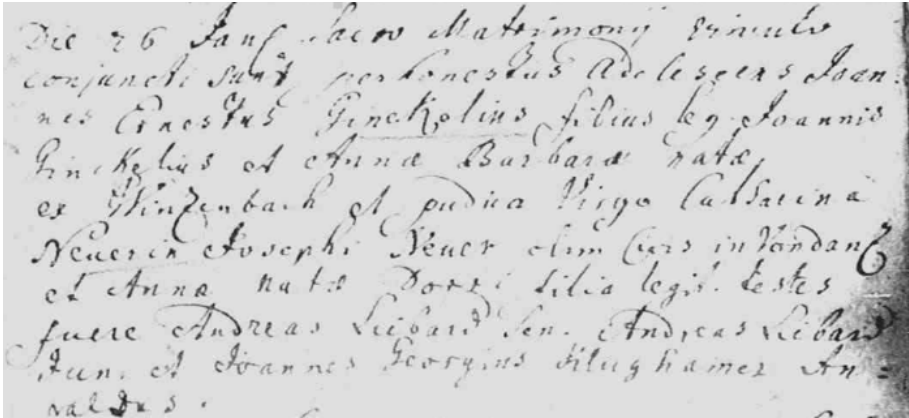 Die 26 Jan. Sacro Matrimonij vinculo
conjuncti sunt perhonestus adolescens Joan:
nes Ernestus Ginckelius filius leg. Joannis
Ginckelius et Annæ Barbaræ natæ
ex Winzenbach et pudica Virgo Catharina
Neuerin Josephi Neuer olim Civis in
et Annæ natæ filia legit. testes
fuere Andreas Liebard Sen. Andreas Liebard
Jun. et Joannes Georgius